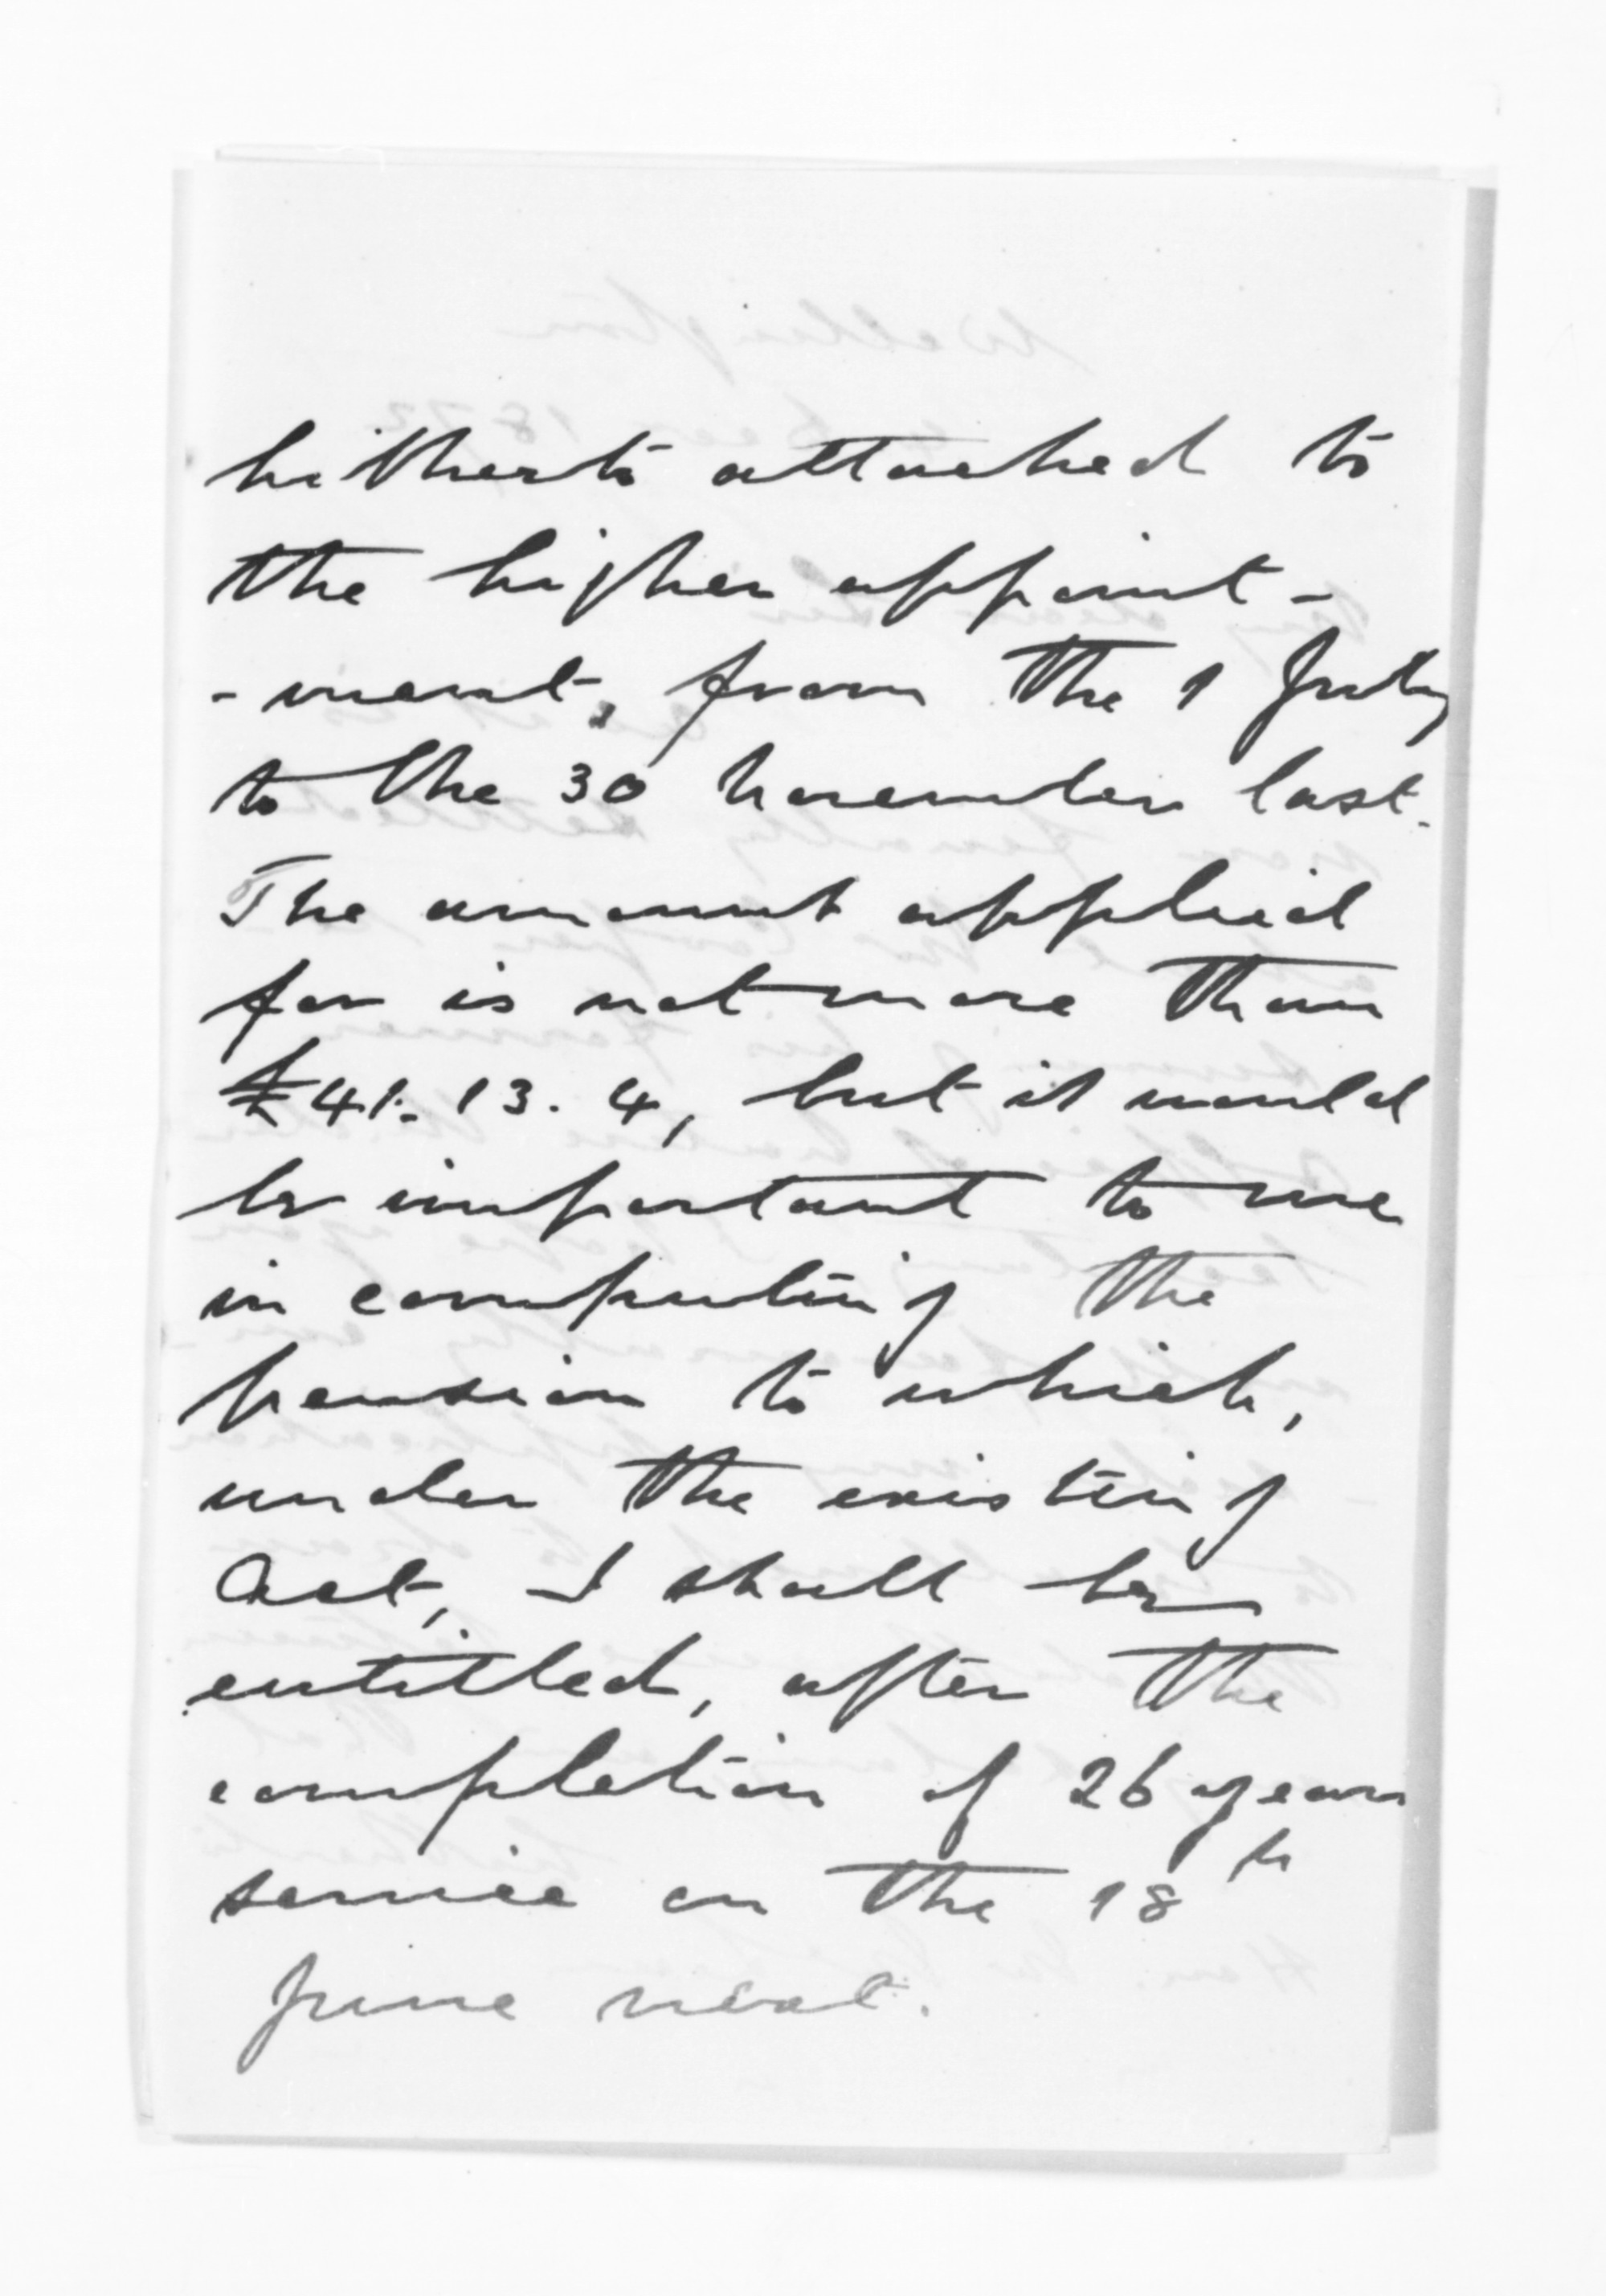 hitherto attached to
the higher appoint-
-ment, from the 1 July
to the 30 November last.
The amount applied
for is not more than
£41. 13. 4, but it would
be important to me
in computing the
pension to which,
under the existing
Act, I shall be
entitled, after the
completion of 26 years
service on the 18th
June next.